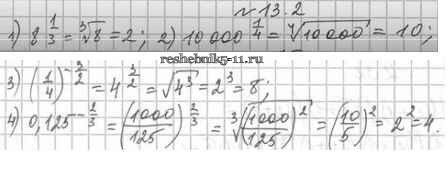 №13.2
1) 8^{1/3} = ∛8 = 2; 2) 10000^{1/4} = ∜10000 = 10;
reshebnik5-11.ru
3) (1/4)^{-3/2} = 4^{3/2} = √4³ = 2³ = 8;
4) 0,125^{-2/3} = (1000/125)^{2/3} = ∛(1000/125)² = (10/5)² = 2² = 4.